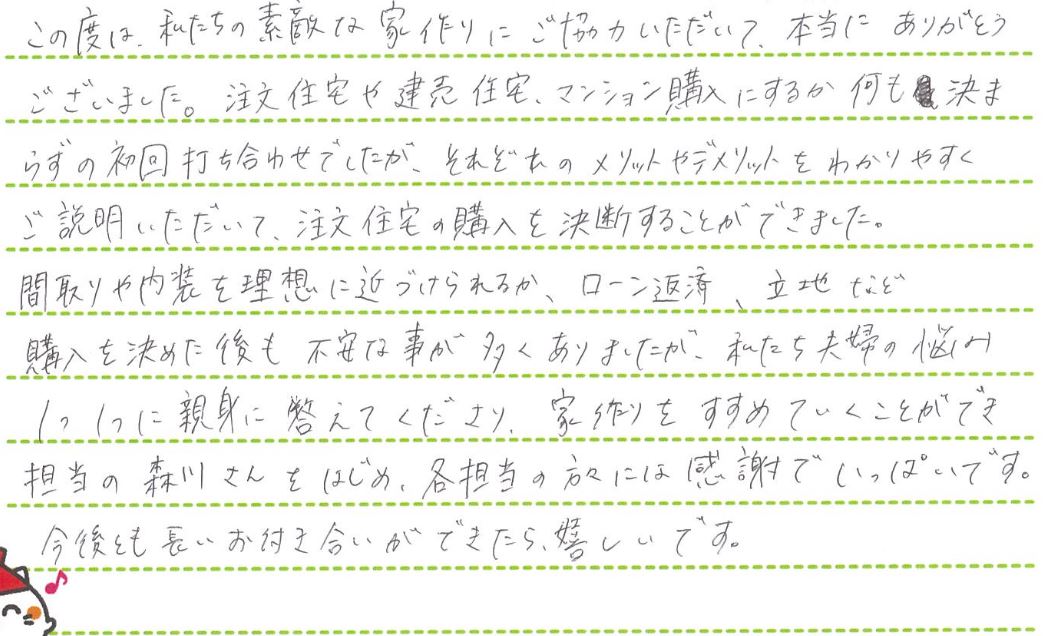 この度は、私たちの素敵な家作りにご協力いただいて、本当にありがとう
ございました。注文住宅や建売住宅、マンション購入にするか何も決ま
らずの初回打ち合わせでしたが、それぞれのメリットやデメリットをわかりやすく
ご説明いただいて、注文住宅の購入を決断することができました。
間取りや内装を理想に近づけられるか、ローン返済、立地など
購入を決めた後も不安な事が多くありましたが、私たち夫婦の悩み
1つ1つに親身に答えてくださり、家作りをすすめていくことができ
担当の森川さんをはじめ、各担当の方々には感謝でいっぱいです。
今後とも長いお付き合いができたら、嬉しいです。